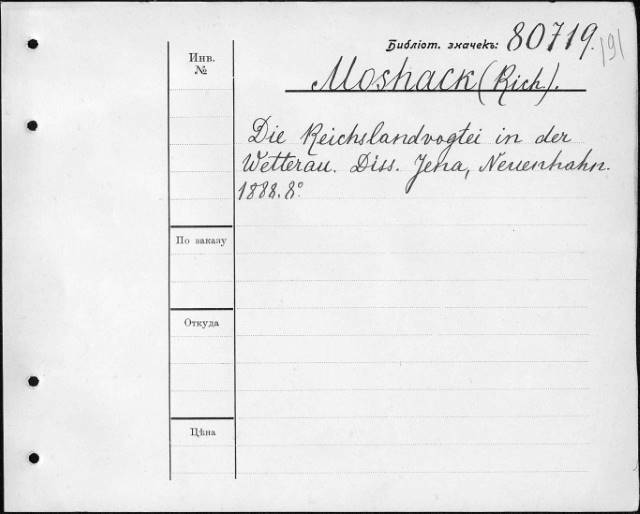 Библіот. значекъ: 80719.
191
Инв.
№
Moshack (Rich).
Die Reichslandvogtei in der
Wetterau. Diss. Jena, Neuenhahn.
1888. 8º
По заказу
Откуда
Цѣна